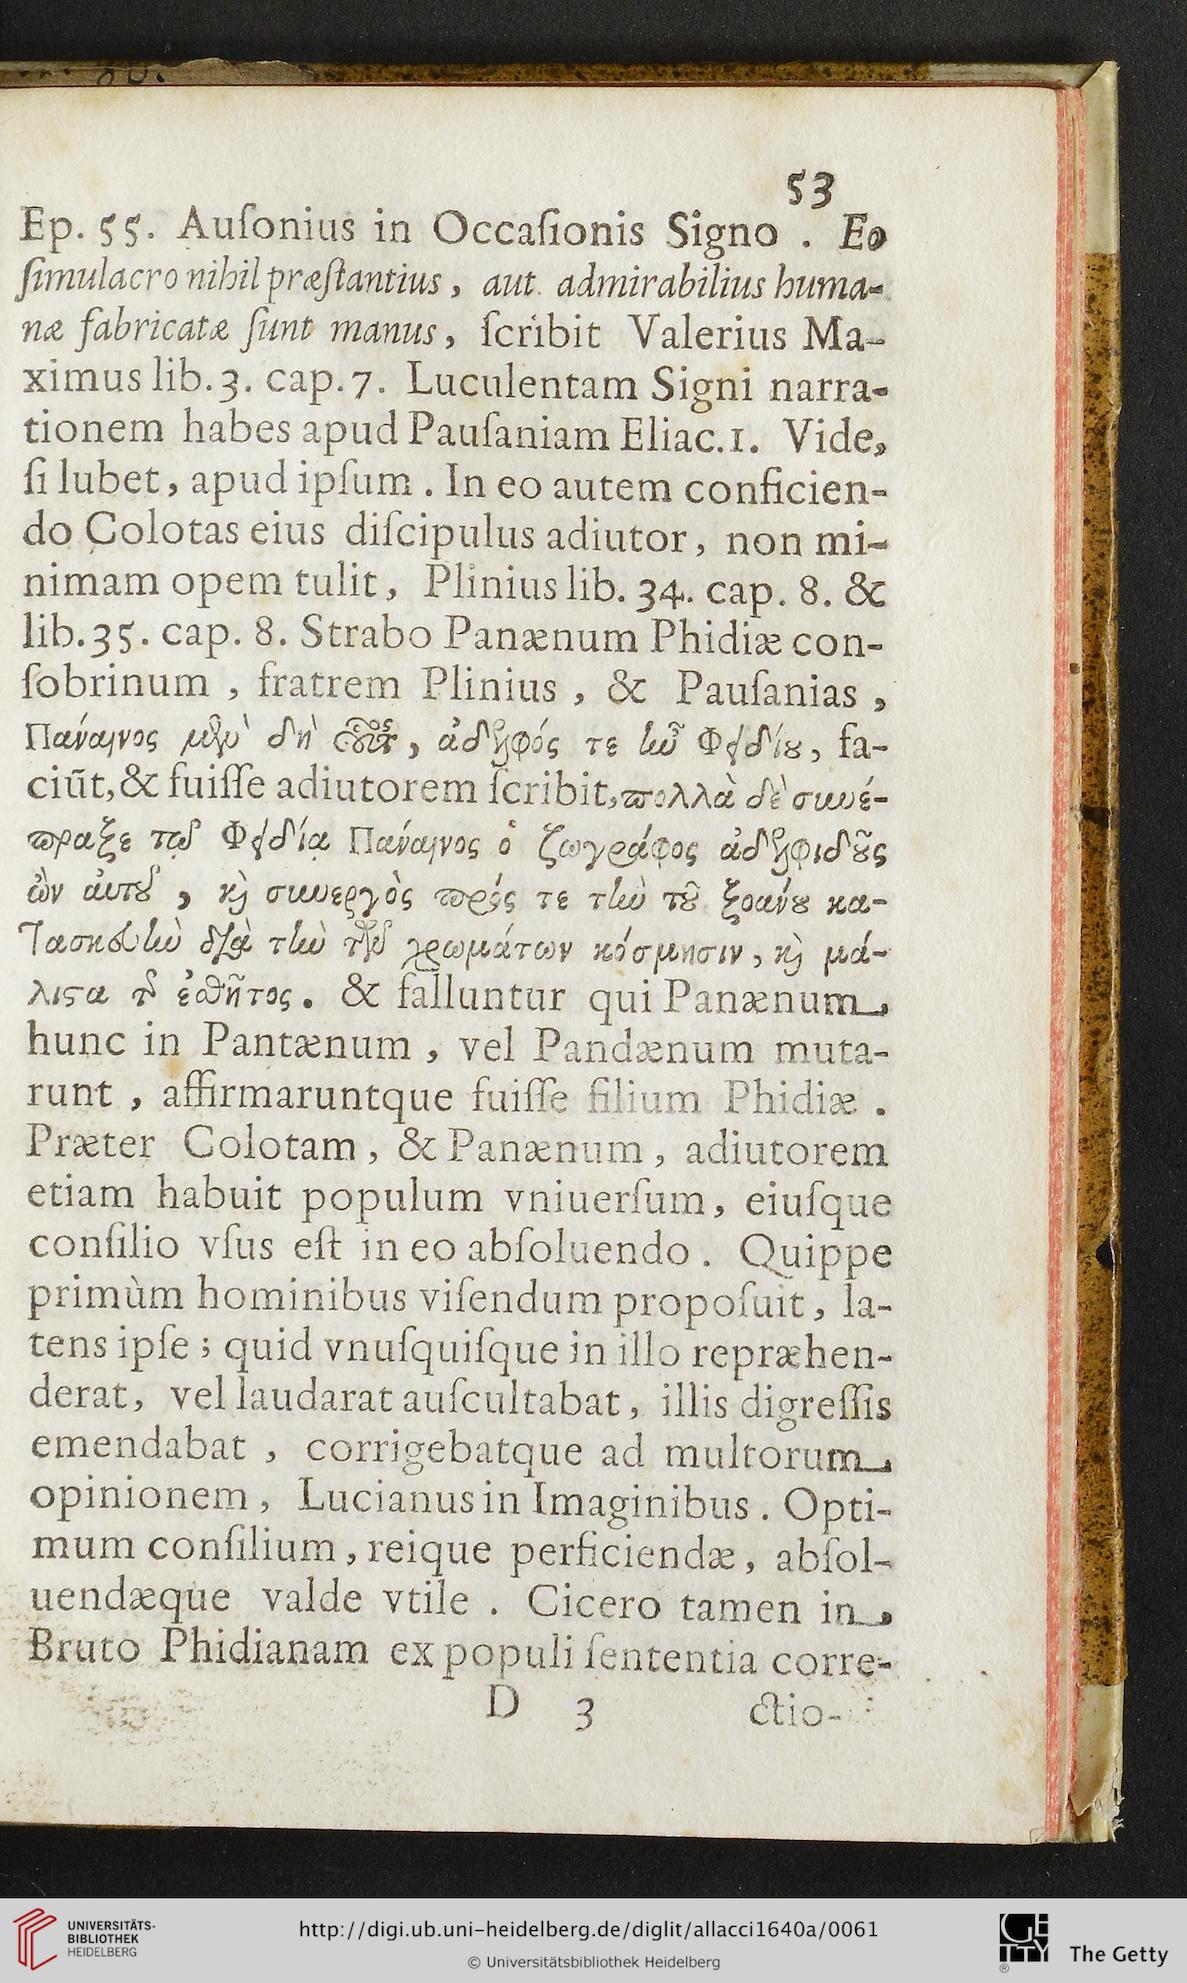 53
Ep. 55. Auſonius in Occaſionis Signo . Eo
ſimulacro nihil præſtantius, aut admirabilius huma-
næ fabricatæ ſunt manus, ſcribit Valerius Ma-
ximus lib. 3. cap. 7. Luculentam Signi narra-
tionem habes apud Pauſaniam Eliac. 1. Vide,
ſi lubet, apud ipſum . In eo autem conficien-
do Colotas eius diſcipulus adiutor, non mi-
nimam opem tulit, Plinius lib. 34. cap. 8. &
lib. 35. cap. 8. Strabo Panænum Phidiæ con-
ſobrinum , fratrem Plinius , & Pauſanias ,
Πανάινος μὲν δὴ οὗτος, ἀδελφός τε ἦν Φειδίου, fa-
ciūt, & fuiſſe adiutorem ſcribit, πολλὰ δὲ συνέ-
πραξε τῷ Φειδίᾳ Πανάινος ὁ ζωγράφος ἀδελφιδοῦς
ὢν ἀυτοῦ, καὶ συνεργὸς πρός τε τὴν τοῦ ξοάνου κα-
τασκευὴν διὰ τὴν τῶν χρωμάτων κόσμησιν, καὶ μά-
λιϛα τῆς ἐσθῆτος. & falluntur qui Panænum
hunc in Pantænum , vel Pandænum muta-
runt , affirmaruntque fuiſſe filium Phidiæ .
Præter Colotam, & Panænum, adiutorem
etiam habuit populum vniuerſum, eiuſque
conſilio vſus eſt in eo abſoluendo . Quippe
primùm hominibus viſendum propoſuit, la-
tens ipſe ; quid vnuſquiſque in illo repræhen-
derat, vel laudarat auſcultabat, illis digreſſis
emendabat , corrigebatque ad multorum
opinionem, Lucianus in Imaginibus . Opti-
mum conſilium, reique perficiendæ, abſol-
uendæque valde vtile . Cicero tamen in
Bruto Phidianam ex populi ſententia corre-
D 3 ctio-
UNIVERSITÄTS-
BIBLIOTHEK
HEIDELBERG
http://digi.ub.uni-heidelberg.de/diglit/allacci1640a/0061
© Universitätsbibliothek Heidelberg
GETTY
®
The Getty